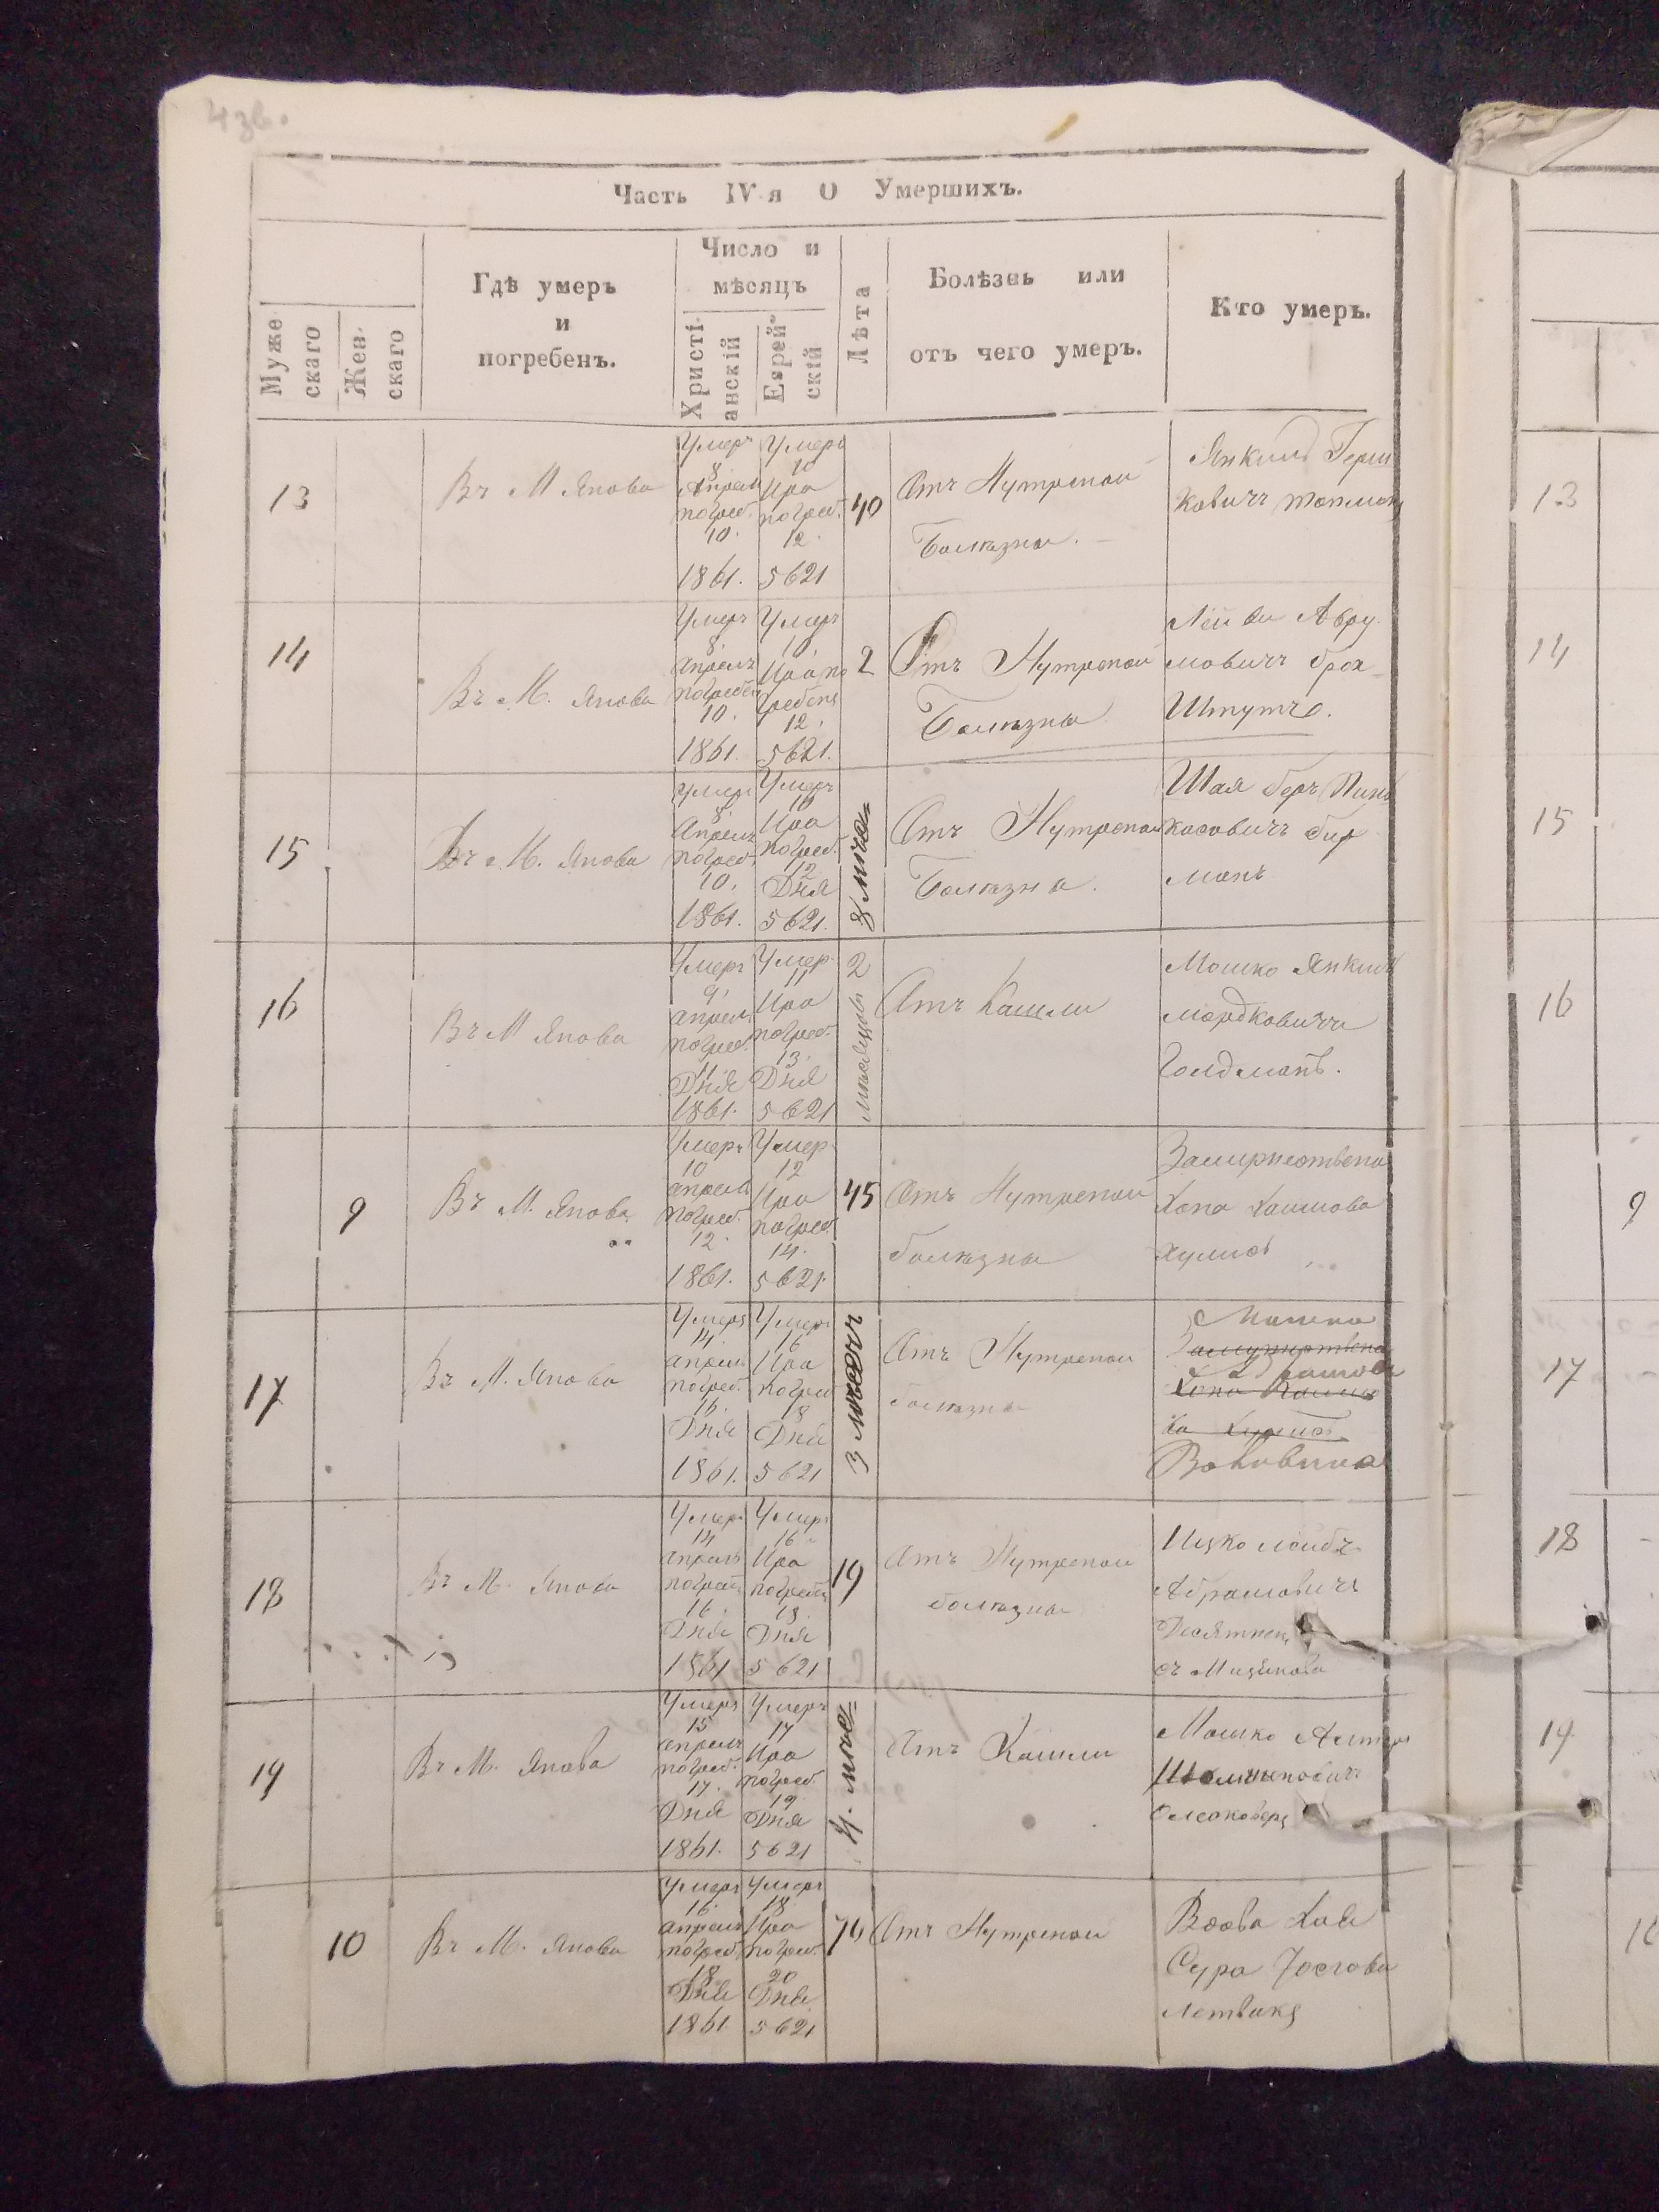 4 зв.
Часть IV-я О Умершихъ.
Муже-
скаго
Жен-
скаго
Гдѣ умеръ
и
погребенъ.
Число и
мѣсяцъ
Христі-
анскій
Еврей-
скій
Лѣта
Болѣзнь или
отъ чего умеръ.
Кто умеръ.
13
Въ М Янова
Умеръ
8
Апреля
погреб.
10.
1861.
Умеръ
10
Ира
погреб.
12.
5621
40
Отъ Нутреной
Болѣзни.
Янкель Герш
ковичъ
14
Въ М. Янова
Умеръ
8
апреля
погребенъ
10.
1861.
Умеръ
10
Ира по
гребенъ
12.
5621.
2
Отъ Нутреной
Болѣзни
Лейви Авру
мовичъ
15
Въ М. Янова
Умеръ
8
Апреля
погреб.
10.
1861.
Умеръ
10
Ира
погреб.
12
Дня
5621.
8 мѣся
Отъ Нутреной
Болѣзни.
Шая беръ Пин
касовичъ
манъ
16
Въ М Янова
Умеръ
9
апреля
погреб.
11.
Дня
1861.
Умер
11
Ира
погреб.
13.
Дня
5621
2
мѣсяцовъ
Отъ Кашли
Мошко Янкель
мордковичъ
Голдманъ.
9
Въ М. Янова
Умеръ
10
апреля
погреб.
12
1861.
Умер
12
Ира
погреб.
14.
5621.
45
Отъ Нутреной
болѣзни
Замужнествена
Хона Хаимова
17
Въ М. Янова
Умеръ
14.
апреля
погреб.
16.
Дня
1861.
Умеръ
16
Ира
погреб
18
Дня
5621
3 месеч
Отъ Нутреной
болѣзни
18
Въ М. Янова
Умер
14
апреля
погреб
16.
Дня
1861
Умер
16
Ира
погребен
18.
Дня
5621
19
Отъ Нутреной
болѣзни
Ицко лейбъ
Абрамовичъ
19
Въ М. Янова
Умеръ
15
апреля
погреб.
17.
Дня
1861.
Умеръ
17
Ира
погреб.
19.
Дня
5621
4. мѣс
Отъ Кашли
Мошко
10
Въ М. Янова
Умеръ
16.
апреля
погреб.
18.
Дня
1861
Умеръ
18
Ира
погреб.
20
Дня
5621
Отъ Нутреной
Вдова Хая
Сура
13
14
15
16
9
17
18
19.